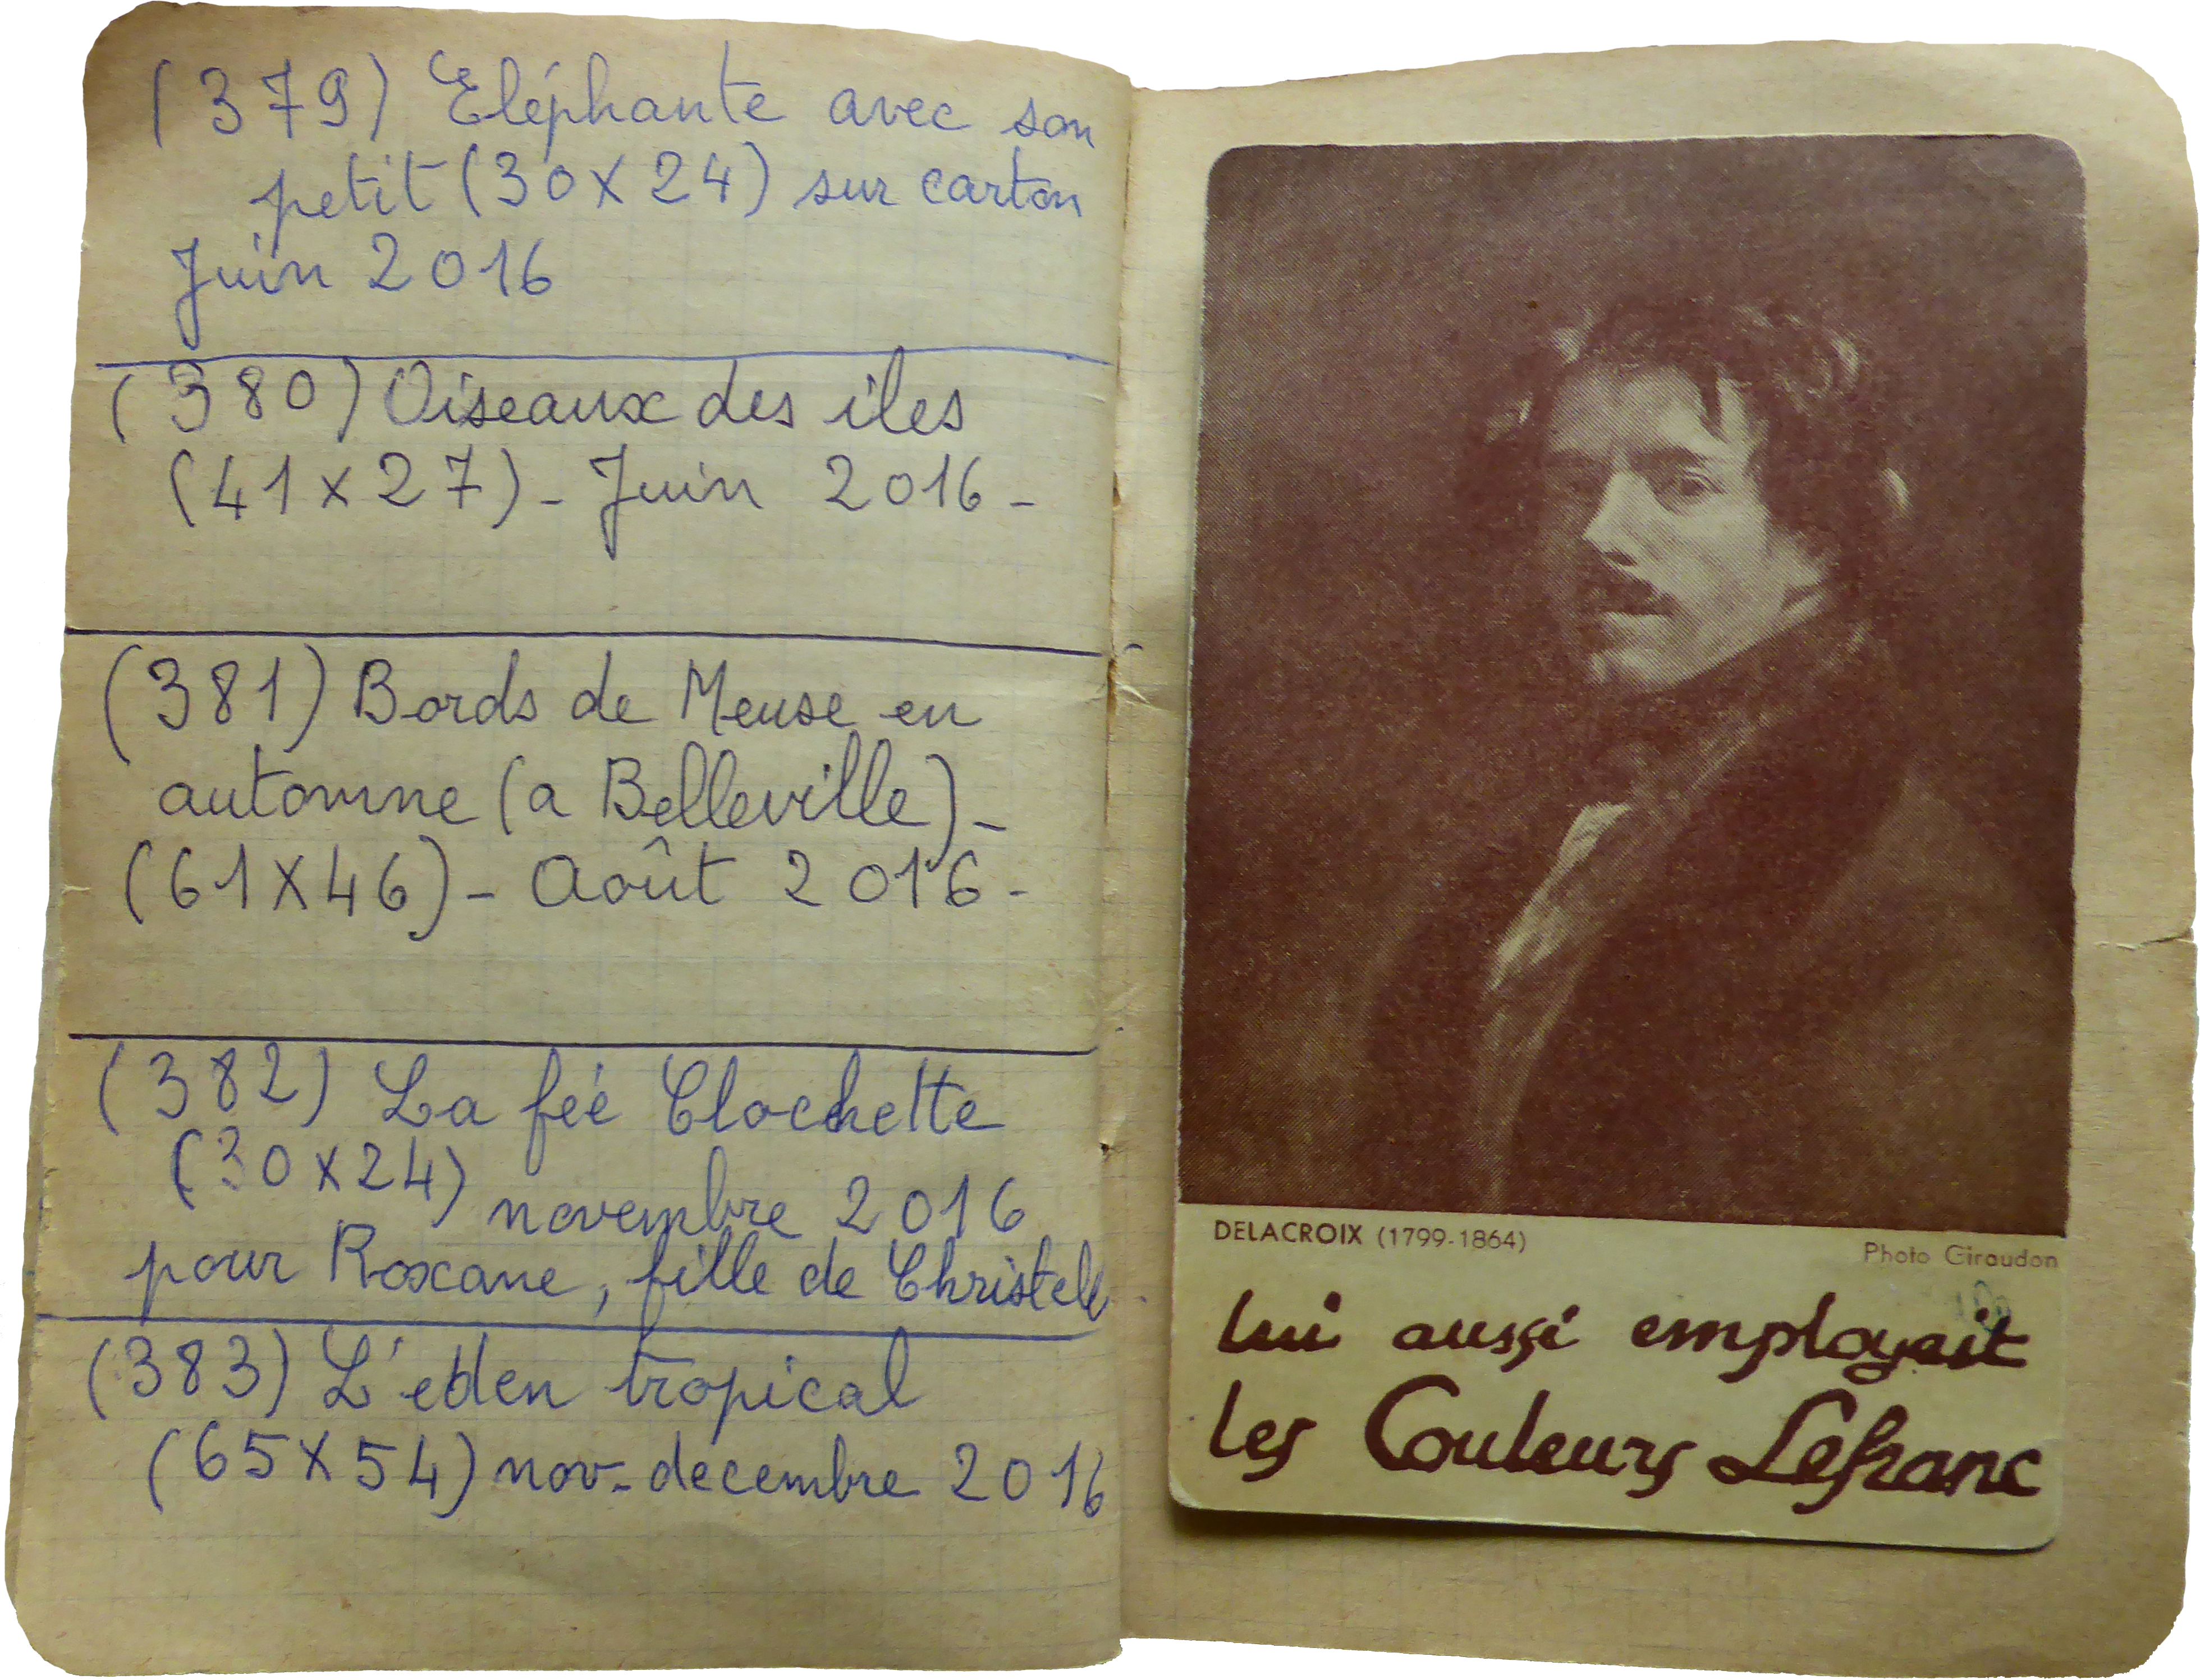 (379) Eléphante avec son
petit (30 x 24) sur carton
Juin 2016
(380) Oiseaux des iles
(41 x 27) - Juin 2016 -
(381) Bords de Meuse en
automne (a Belleville) -
(61 X 46) - Août 2016 -
(382) La feé Clochette
(30 x 24) novembre 2016
pour Roxane, fille de Christelle
(383) L'eden tropical
(65 X 54) nov - decembre 2016
DELACROIX (1799-1864)
Photo Giraudon
lui aussi employait
les Couleurs Lefranc